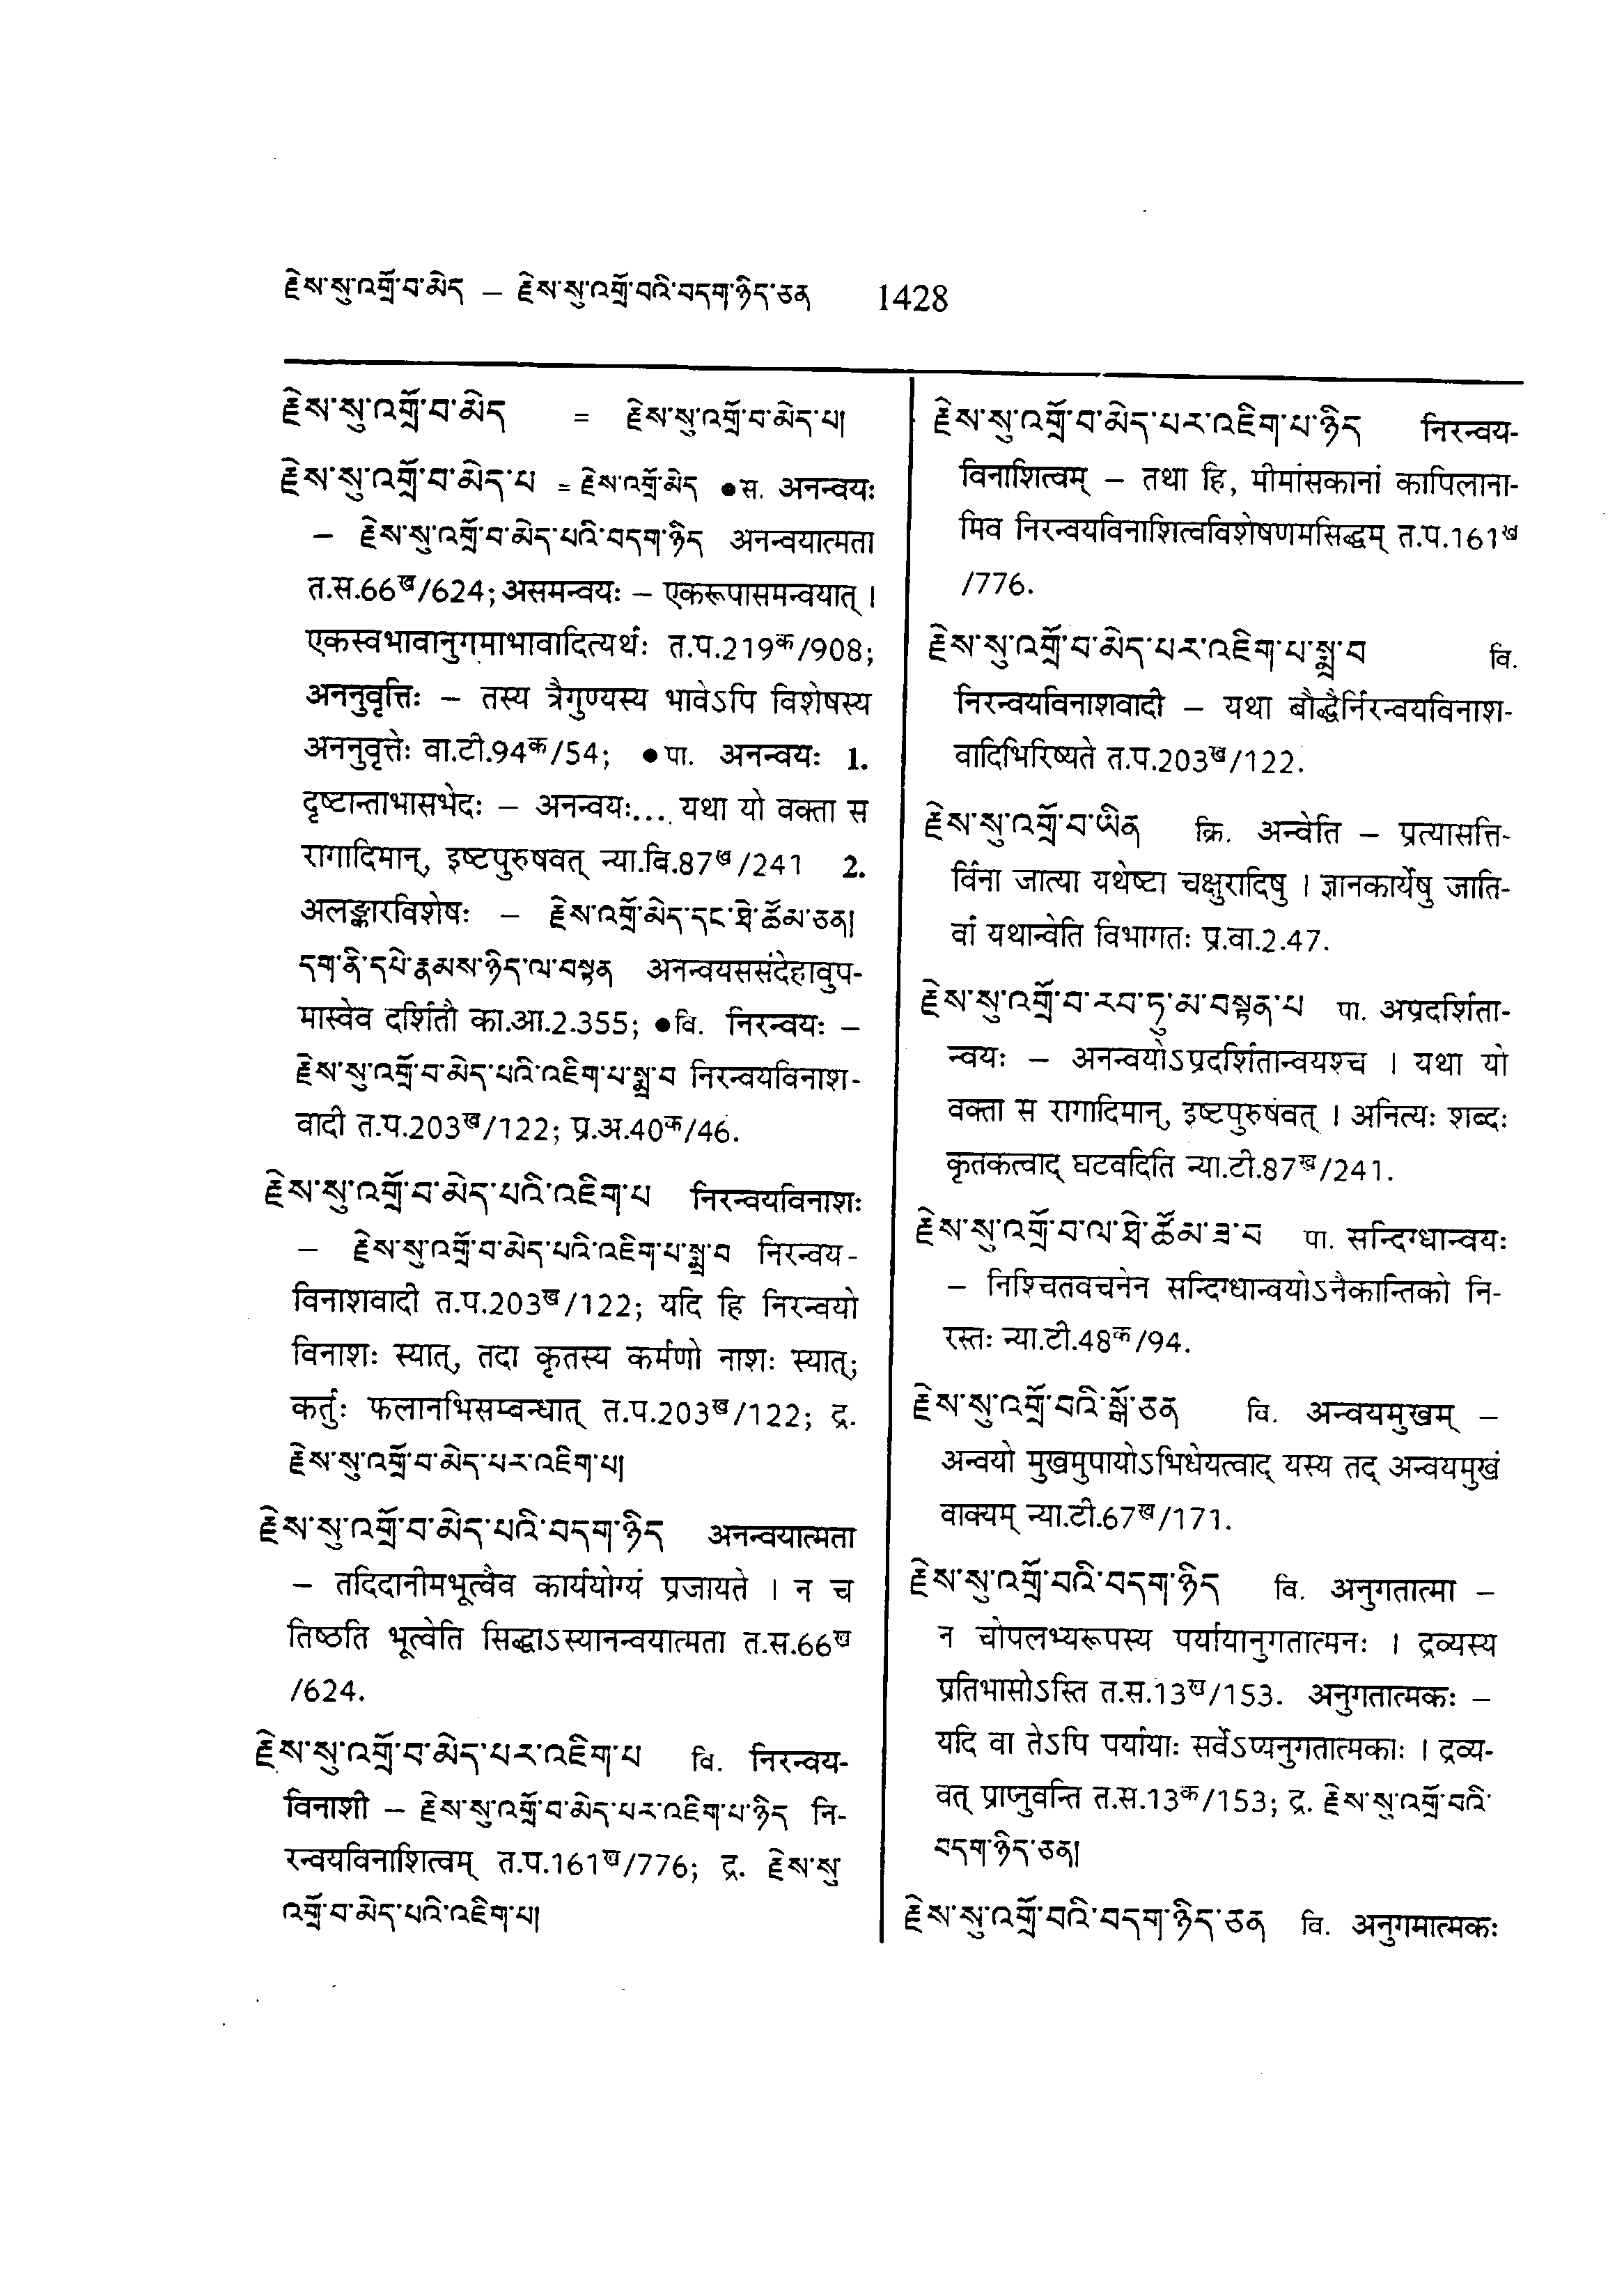 རྗེས་སུ་འགྲོ་བ་མེད – རྗེས་སུ་འགྲོ་བའི་བདག་ཉིད་ཅན 1428
རྗེས་སུ་འགྲོ་བ་མེད = རྗེས་སུ་འགྲོ་བ་མེད་པ།
རྗེས་སུ་འགྲོ་བ་མེད་པ = རྗེས་འགྲོ་མེད ●स. अनन्वयः
– རྗེས་སུ་འགྲོ་བ་མེད་པའི་བདག་ཉིད अनन्वयात्मता
त.स.66ख/624; असमन्वयः – एकरूपासमन्वयात् ।
एकस्वभावानुगमाभावादित्यर्थः त.प.219क/908;
अननुवृत्तिः – तस्य त्रैगुण्यस्य भावेऽपि विशेषस्य
अननुवृत्तेः वा.टी.94क/54; ●पा. अनन्वयः 1.
दृष्टान्ताभासभेदः – अनन्वयः... यथा यो वक्ता स
रागादिमान्, इष्टपुरुषवत् न्या.बि.87ख/241 2.
अलङ्कारविशेषः – རྗེས་འགྲོ་མེད་དང་ཐེ་ཚོམ་ཅན།
དག་ནི་དཔེ་རྣམས་ཉིད་ལ་བསྟན अनन्वयससंदेहावुप-
मास्वेव दर्शितौ का.आ.2.355; ●वि. निरन्वयः –
རྗེས་སུ་འགྲོ་བ་མེད་པའི་འཇིག་པ་སྨྲ་བ निरन्वयविनाश-
वादी त.प.203ख/122; प्र.अ.40क/46.
རྗེས་སུ་འགྲོ་བ་མེད་པའི་འཇིག་པ निरन्वयविनाशः
– རྗེས་སུ་འགྲོ་བ་མེད་པའི་འཇིག་པ་སྨྲ་བ निरन्वय-
विनाशवादी त.प.203ख/122; यदि हि निरन्वयो
विनाशः स्यात्, तदा कृतस्य कर्मणो नाशः स्यात्;
कर्तुः फलानभिसम्बन्धात् त.प.203ख/122; द्र.
རྗེས་སུ་འགྲོ་བ་མེད་པར་འཇིག་པ།
རྗེས་སུ་འགྲོ་བ་མེད་པའི་བདག་ཉིད अनन्वयात्मता
– तदिदानीमभूत्वैव कार्ययोग्यं प्रजायते । न च
तिष्ठति भूत्वेति सिद्धाऽस्यानन्वयात्मता त.स.66ख
/624.
རྗེས་སུ་འགྲོ་བ་མེད་པར་འཇིག་པ वि. निरन्वय-
विनाशी – རྗེས་སུ་འགྲོ་བ་མེད་པར་འཇིག་པ་ཉིད नि-
रन्वयविनाशित्वम् त.प.161ख/776; द्र. རྗེས་སུ་
འགྲོ་བ་མེད་པའི་འཇིག་པ།
རྗེས་སུ་འགྲོ་བ་མེད་པར་འཇིག་པ་ཉིད निरन्वय-
विनाशित्वम् – तथा हि, मीमांसकानां कापिलाना-
मिव निरन्वयविनाशित्वविशेषणमसिद्धम् त.प.161ख
/776.
རྗེས་སུ་འགྲོ་བ་མེད་པར་འཇིག་པ་སྨྲ་བ वि.
निरन्वयविनाशवादी – यथा बौद्धैर्निरन्वयविनाश-
वादिभिरिष्यते त.प.203ख/122.
རྗེས་སུ་འགྲོ་བ་ཡིན क्रि. अन्वेति – प्रत्यासत्ति-
र्विना जात्या यथेष्टा चक्षुरादिषु । ज्ञानकार्येषु जाति-
र्वा यथान्वेति विभागतः प्र.वा.2.47.
རྗེས་སུ་འགྲོ་བ་རབ་ཏུ་མ་བསྟན་པ पा. अप्रदर्शिता-
न्वयः – अनन्वयोऽप्रदर्शितान्वयश्च । यथा यो
वक्ता स रागादिमान्, इष्टपुरुषवत् । अनित्यः शब्दः
कृतकत्वाद् घटवदिति न्या.टी.87ख/241.
རྗེས་སུ་འགྲོ་བ་ལ་ཐེ་ཚོམ་ཟ་བ पा. सन्दिग्धान्वयः
– निश्चितवचनेन सन्दिग्धान्वयोऽनैकान्तिको नि-
रस्तः न्या.टी.48क/94.
རྗེས་སུ་འགྲོ་བའི་སྒོ་ཅན वि. अन्वयमुखम् –
अन्वयो मुखमुपायोऽभिधेयत्वाद् यस्य तद् अन्वयमुखं
वाक्यम् न्या.टी.67ख/171.
རྗེས་སུ་འགྲོ་བའི་བདག་ཉིད वि. अनुगतात्मा –
न चोपलभ्यरूपस्य पर्यायानुगतात्मनः । द्रव्यस्य
प्रतिभासोऽस्ति त.स.13ख/153. अनुगतात्मकः –
यदि वा तेऽपि पर्यायाः सर्वेऽप्यनुगतात्मकाः । द्रव्य-
वत् प्राप्नुवन्ति त.स.13क/153; द्र. རྗེས་སུ་འགྲོ་བའི་
བདག་ཉིད་ཅན།
རྗེས་སུ་འགྲོ་བའི་བདག་ཉིད་ཅན वि. अनुगमात्मकः